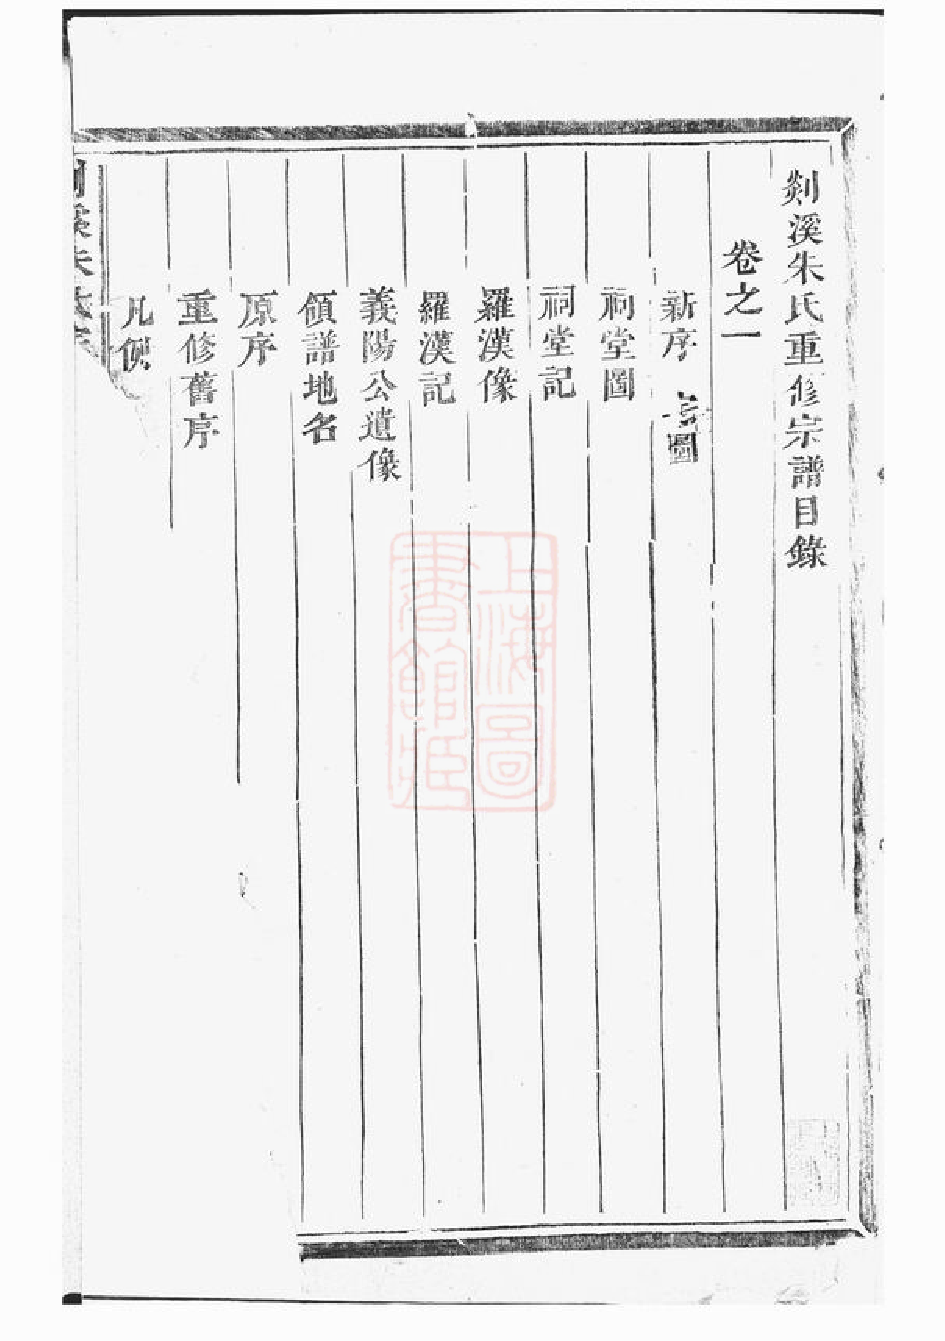 剡溪朱氏重修宗譜目錄
卷之一
新序 圖
祠堂圖
祠堂記
羅漢像
羅漢記
義陽公遺像
領譜地名
原序
重修舊序
凡例
溪朱氏宗
上海圖
書館藏